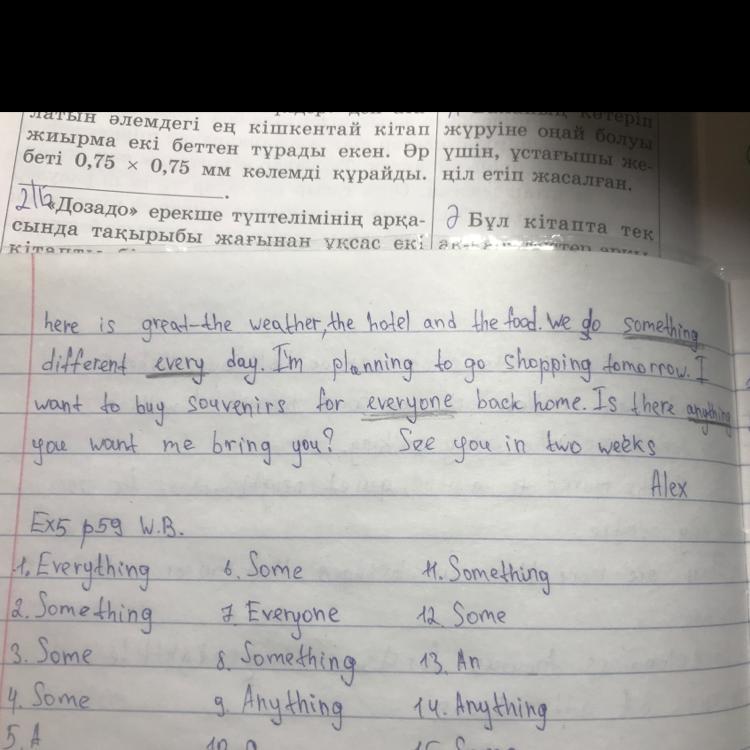 латын әлемдегі ең кішкентай кітап
жиырма екі беттен тұрады екен. Әр
беті 0,75 × 0,75 мм көлемді құрайды.
«Дозадо» ерекше түптелімінің арқа-
сында тақырыбы жағынан ұқсас екі
көтеріп
жүруіне оңай болуы
үшін, ұстағышы же-
ңіл етіп жасалған.
Ә Бұл кітапта тек
here is great-the weather, the hotel and the food. We do something
different every day. I'm planning to go shopping tomorrow. I
want to buy souvenirs for everyone back home. Is there anything
you want me bring you? See you in two weeks
Alex
Ex5 p59 W.B.
1. Everything 6. Some 11. Something
2. Something 7. Everyone 12. Some
3. Some 8. Something 13. An
4. Some 9. Anything 14. Anything
5. A